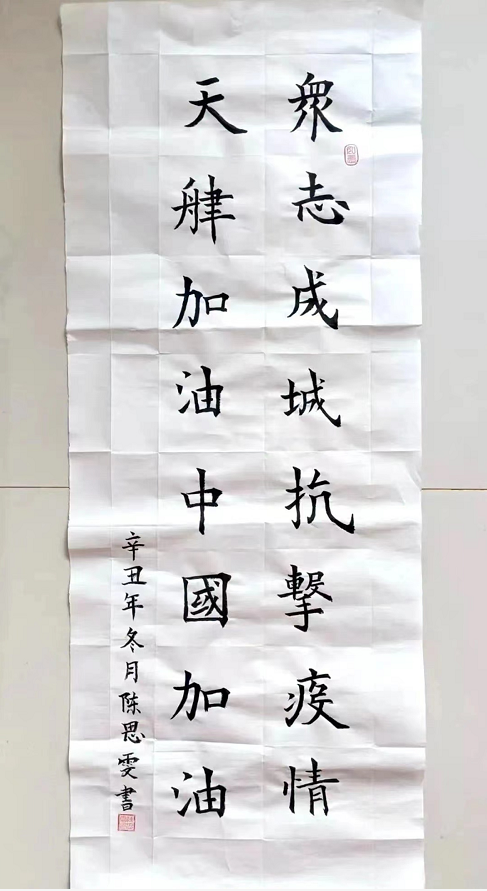 衆志成城抗擊疫情
天津加油中國加油
辛丑年冬月陈思雯書